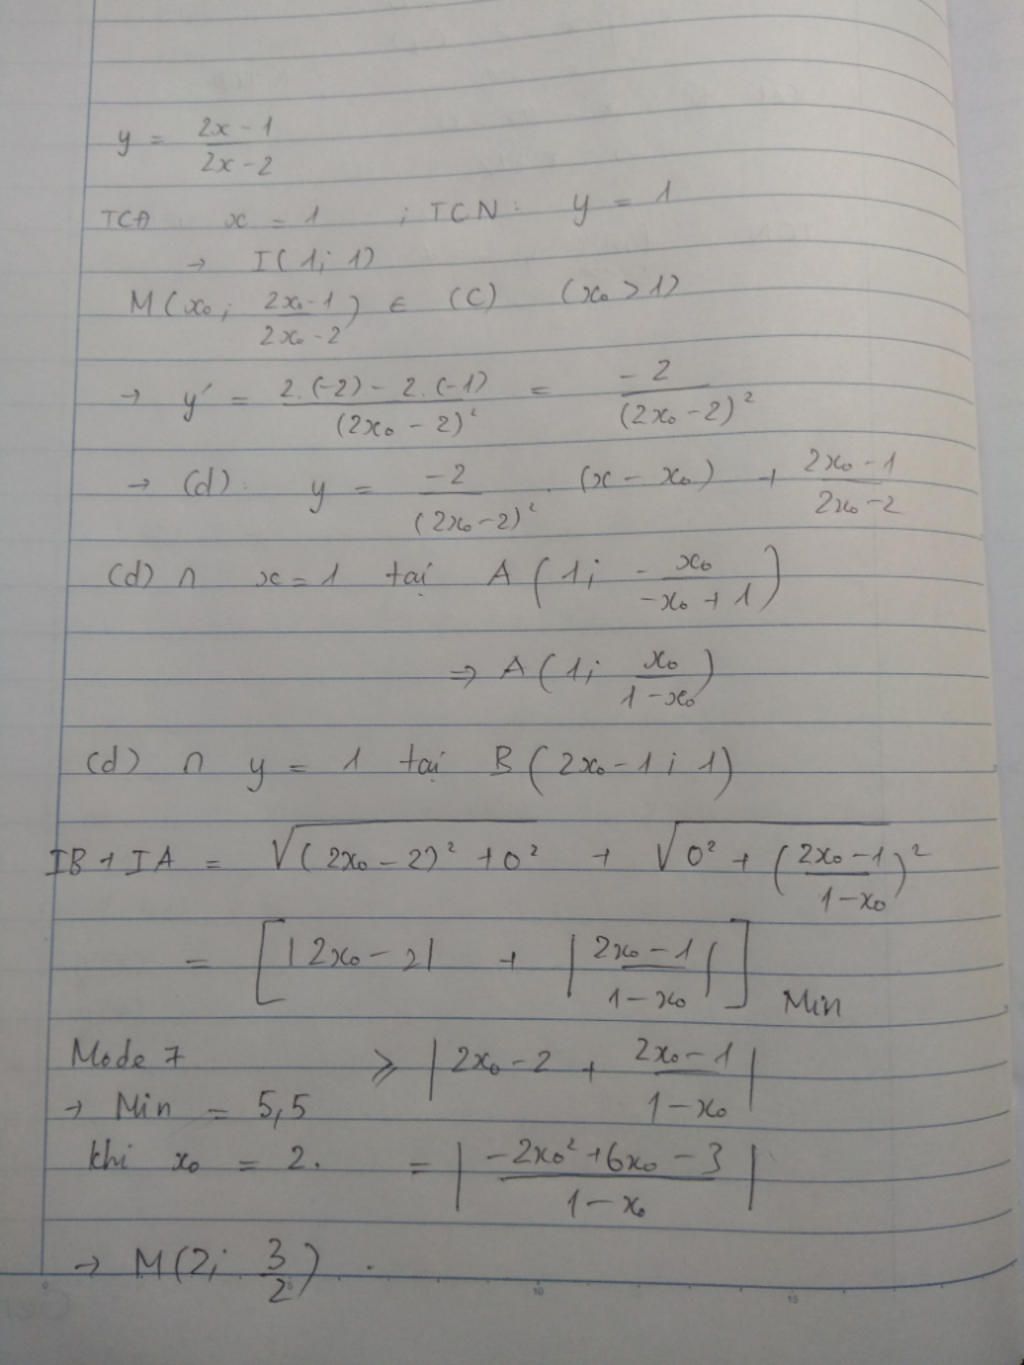 y = \frac{2x - 1}{2x - 2}
TCĐ x = 1 ; TCN : y = 1
→ I(1; 1)
M(x₀; \frac{2x₀-1}{2x₀-2}) ∈ (C) (x₀ > 1)
→ y' = \frac{2.(-2) - 2.(-1)}{(2x₀ - 2)²} = \frac{-2}{(2x₀ - 2)²}
→ (d): y = \frac{-2}{(2x₀-2)²} . (x - x₀) + \frac{2x₀-1}{2x₀-2}
(d) ∩ x = 1 tại A(1; -\frac{x₀}{-x₀+1})
⇒ A(1; \frac{x₀}{1-x₀})
(d) ∩ y = 1 tại B(2x₀-1; 1)
IB + IA = \sqrt{(2x₀-2)² + 0²} + \sqrt{0² + (\frac{2x₀-1}{1-x₀})²}
= [|2x₀-2| + |\frac{2x₀-1}{1-x₀}|] Min
Mode 7 ≥ |2x₀-2 + \frac{2x₀-1}{1-x₀}|
→ Min = 5,5
khi x₀ = 2. = |\frac{-2x₀²+6x₀-3}{1-x₀}|
→ M(2; \frac{3}{2}) .
0 10 15